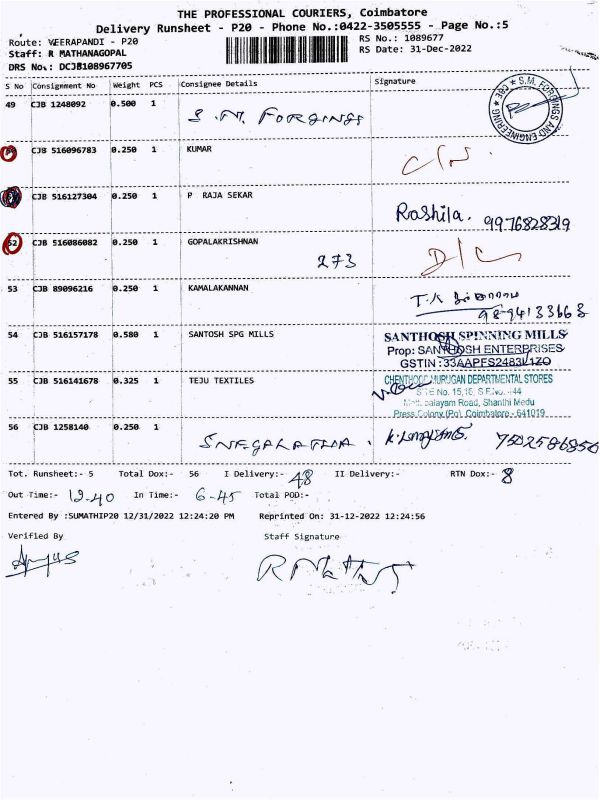 THE PROFESSIONAL COURIERS, Coimbatore
Delivery Runsheet - P20 - Phone No.:0422-3505555 - Page No.:5
Route: VEERAPANDI - P20
RS No.: 1089677
Staff: R MATHANAGOPAL
RS Date: 31-Dec-2022
DRS No.: DCJB108967705
S No Consignment No Weight PCS Consignee Details Signature
49 CJB 1248092 0.500 1 S.M. FORGINGS
S.M. FORGINGS AND ENGINEERING * CBE *
CJB 516096783 0.250 1 KUMAR
CJB 516127304 0.250 1 P RAJA SEKAR
Rashila. 9976828319
52 CJB 516086082 0.250 1 GOPALAKRISHNAN
273 D/C
53 CJB 89096216 0.250 1 KAMALAKANNAN
T.K
9894133663
54 CJB 516157178 0.580 1 SANTOSH SPG MILLS
SANTHOSH SPINNING MILLS
Prop: SANTHOSH ENTERPRISES
GSTIN :33AAPFS2483L1ZO
55 CJB 516141678 0.325 1 TEJU TEXTILES
CHENTHOOR MURUGAN DEPARTMENTAL STORES
No. 15,16, S.F.No.
palayam Road, Shanthi Medu
Press Colony (Po), Coimbatore - 641019
56 CJB 1258140 0.250 1
SNEGALATHA.
Tot. Runsheet:- 5 Total Dox:- 56 I Delivery:- 48 II Delivery:- RTN Dox:- 8
Out Time:- 12.40 In Time:- 6-45 Total POD:-
Entered By :SUMATHIP20 12/31/2022 12:24:20 PM Reprinted On: 31-12-2022 12:24:56
Verified By Staff Signature